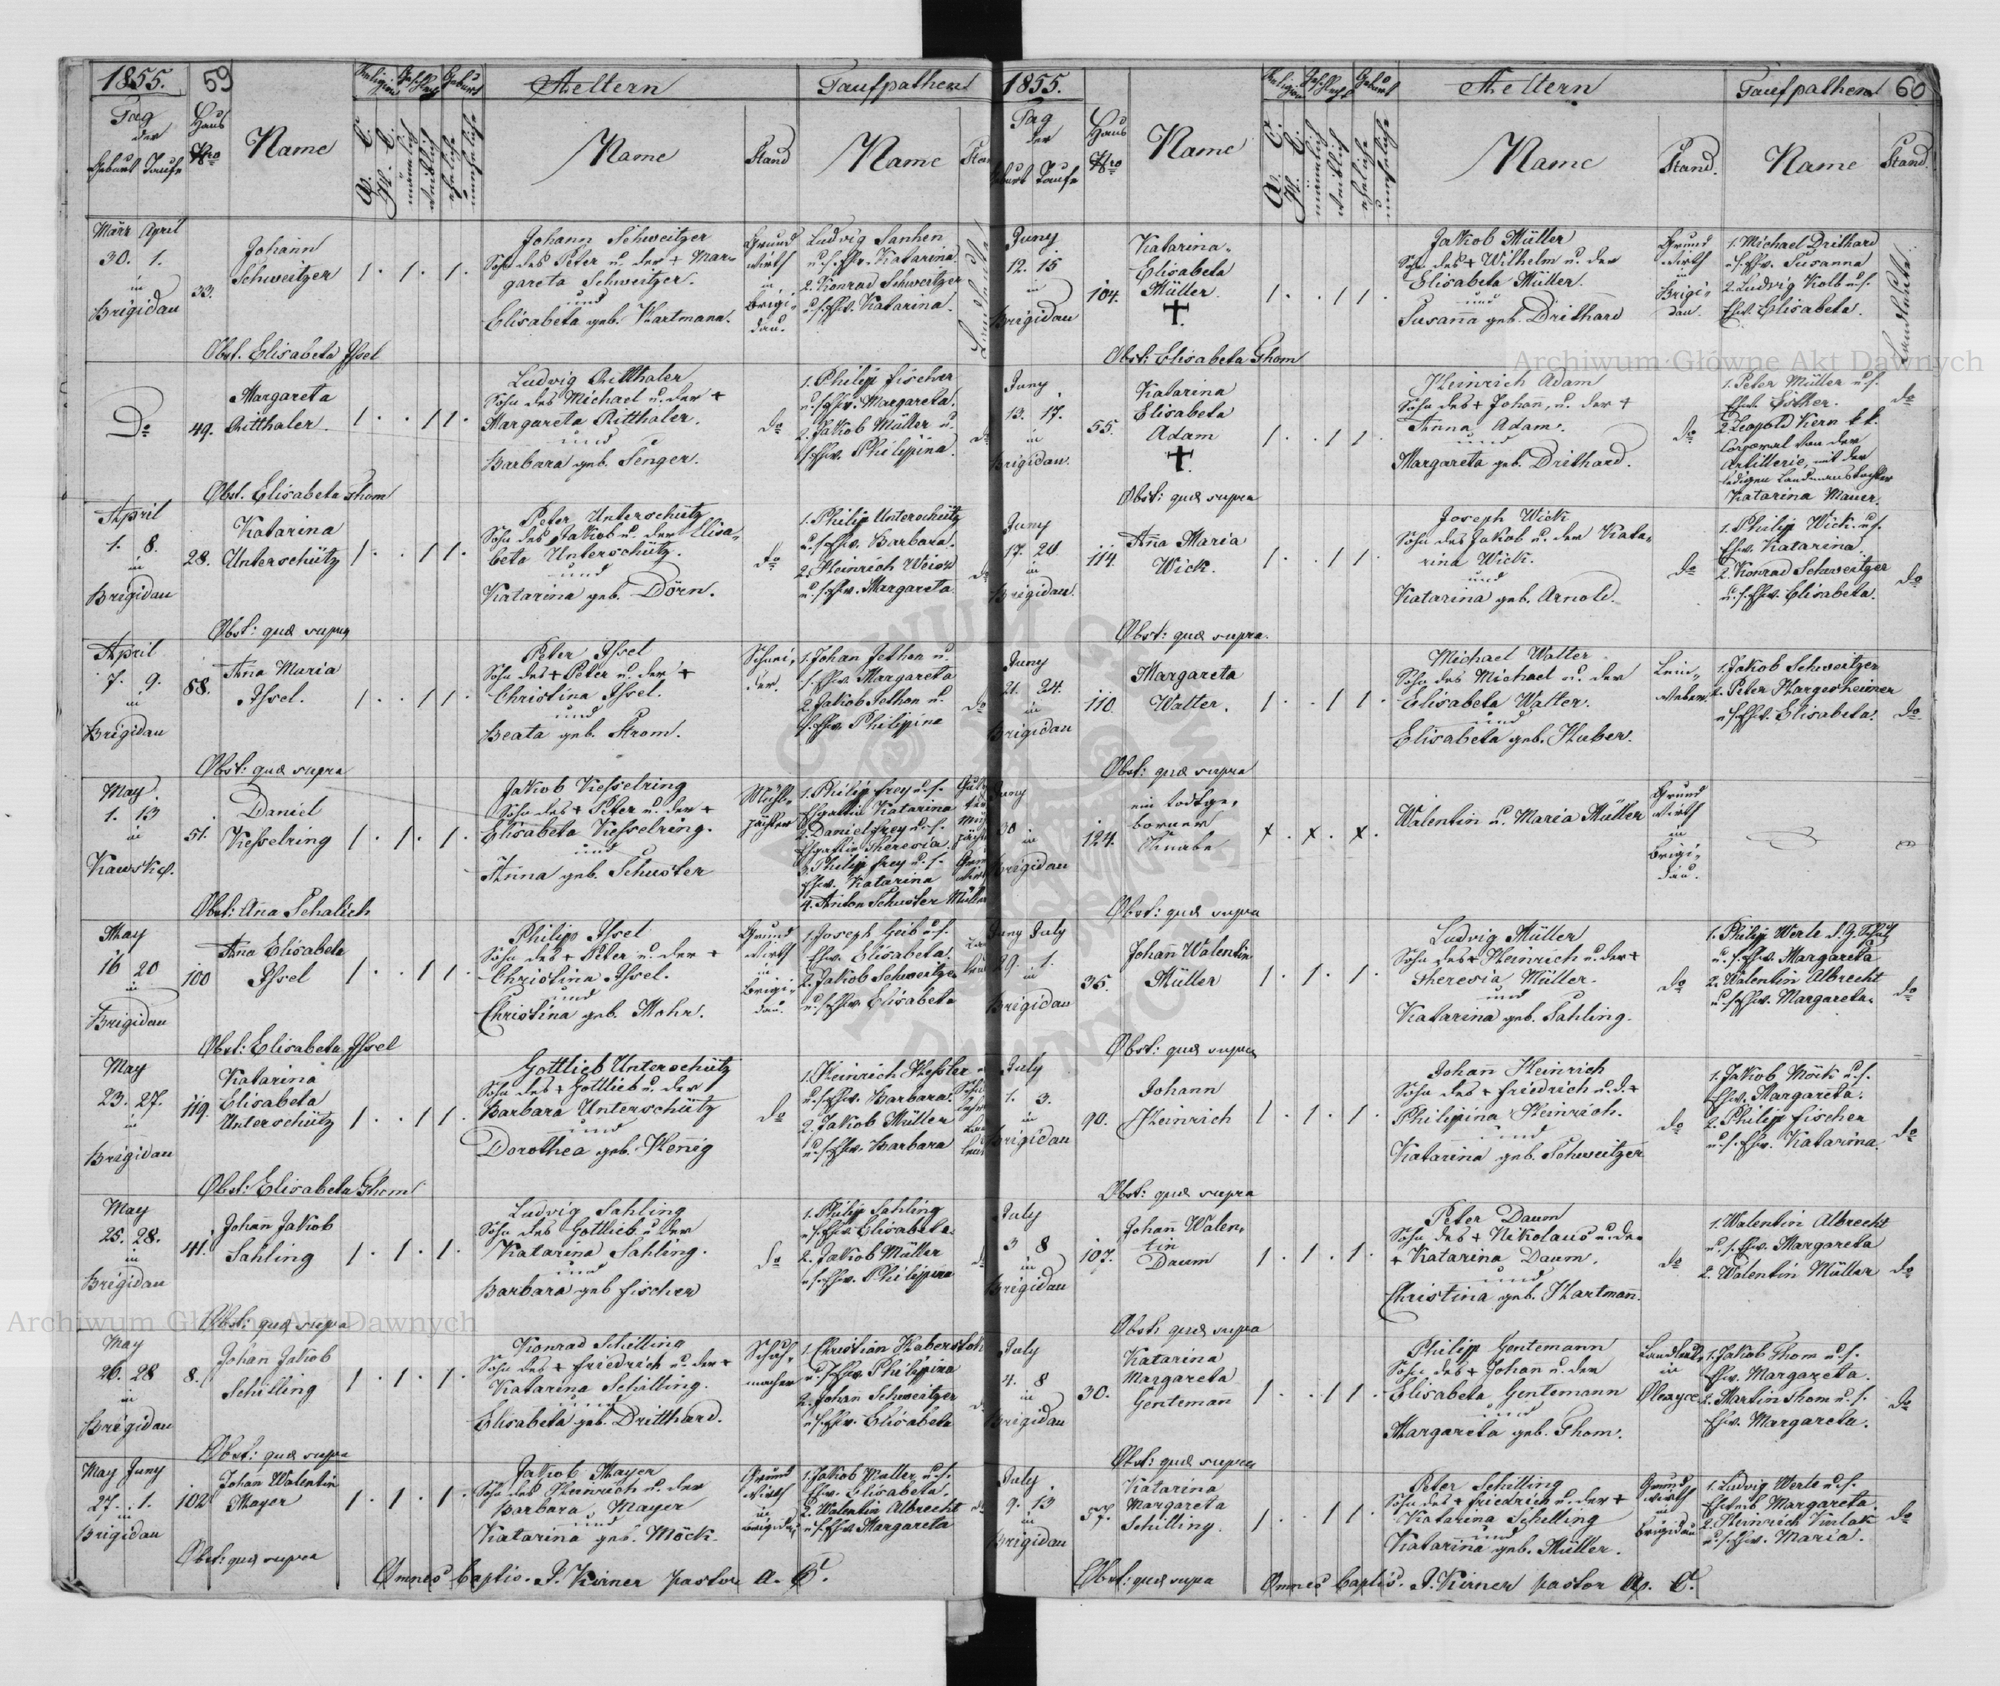 1855.
59
Religion
Geschlecht
Geburt
Aeltern
Taufpathen
Tag
der
Geburt Taufe
Haus
Nro
Name
A. C.
H. C.
männlich
weiblich
eheliche
uneheliche
Name
Stand
Name
März April
30. 1.
in
Brigidau
33.
Johann
Schweitzer
1. 1. 1.
Johann Schweitzer
Sohn des Peter u. der + Mar-
gareta Schweitzer.
und
Elisabeta geb. Hartmann.
Grund
wirth
in
Brigi-
dau.
Ludvig Sanhen
u. s. Ehw. Katarina.
2. Konrad Schweitzer
u. s. Ehw. Katarina.
Landleute
Obst. Elisabeta Issel
Do
49.
Margareta
Ritthaler.
1. . 1 1.
Ludvig Ritthaler
Sohn des Michael u. der +
Margareta Ritthaler.
und
Barbara geb. Senger.
do
1. Philip Fischer
u. s. Ehw. Margareta.
2. Jakob Müller u.
s. Ehw. Philipina.
do
Obst. Elisabeta Thom
April
1. 8.
in
Brigidau
28.
Katarina
Unterschütz
1. . 1 1.
Peter Unterschütz
Sohn des Jakob u. der Elisa-
beta Unterschütz.
und
Katarina geb. Dörn.
do
1. Philip Unterschütz
u. s. Ehw. Barbara.
2. Heinrich Weiss
u. s. Ehw. Margareta
do
Obst: quæ supra
April
7. 9.
in
Brigidau
88.
Aña Maria
Issel.
1. . 1 1.
Peter Issel
Sohn des + Peter u. der +
Christina Issel.
und
Beata geb. Strom.
Schnei-
der.
1. Johan Jethon u.
s. Ehw. Margareta
2. Jakob Jethon u.
s. Ehw. Philipine
do
Obst: quæ supra
May.
1. 13
in
Kawsko.
51.
Daniel
Kesselring
1. 1. 1.
Jakob Kesselring
Sohn des + Peter u. der +
Elisabeta Kesselring.
und
Anna geb. Schuster
1. Philip Frey u. s.
Ehgattin Katarina
2. Daniel Frey u. s.
Ehgattin Theresia.
3. Philip Frey u. s.
Ehw. Katarina
4. Anton Schuster Müller
Obst: Ana Schalich
May
16 20
in
Brigidau
100
Aña Elisabeta
Issel
1. . 1 1
Philipp Issel
Sohn des + Peter u. der +
Christina Issel.
und
Christina geb. Mohr.
Grund
wirth
in
Brigi-
dau.
1. Joseph Geib u. s.
Ehw. Elisabeta.
2. Jakob Schweitzer
u. s. Ehw. Elisabeta
Obst: Elisabeta Issel
May
23. 27.
in
Brigidau
119.
Katarina
Elisabeta
Unterschütz
1. . 1 1.
Gottlieb Unterschütz
Sohn des + Gottlieb u. der
Barbara Unterschütz
und
Dorothea geb. Henig
do
1. Heinrich Kessler
u. s. Ehw. Barbara.
2. Jakob Müller
u. s. Ehw. Barbara
Obst: Elisabeta Thom
May
25. 28.
in
Brigidau
41.
Johañ Jakob
Sahling
1. 1. 1.
Ludvig Sahling
Sohn des Gottlieb u. der
Katarina Sahling.
und
Barbara geb Fischer
do
1. Philip Sahling
u. s. Ehw. Elisabeta
2. Jakob Müller
u. s. Ehw. Philipina
Obst: quæ supra
May
26. 28
in
Brigidau
8.
Johañ Jakob
Schilling
1. 1. 1.
Konrad Schilling
Sohn des + Friedrich u. der +
Katarina Schilling.
und
Elisabeta geb. Dritthard.
Schuh-
macher
1. Christian Haberstoh
u. s. Ehw. Philipina
2. Johan Schweitzer
u. s. Ehw. Elisabeta
Obst: quæ supra
May Juny
27. 1.
in
Brigidau
102
Johañ Valentin
Mayer
1. 1. 1.
Jakob Mayer
Sohn des Heinrich u. der
Barbara Mayer
und
Katarina geb. Möck.
Grund
wirth
in
Brigidau
1. Jakob Müller u. s.
Ehw. Elisabeta.
2. Valentin Albrecht
u. s. Ehw. Margareta
Obst: quæ supra
Omnes baptis. J. Kirner pastor A. C.
1855.
60
Religion
Geschlecht
Geburt
Aeltern
Taufpathen
Tag
der
Geburt Taufe
Haus
Nro
Name
A. C.
H. C.
männlich
weiblich
eheliche
uneheliche
Name
Stand.
Name
Stand.
Juny
12. 15
in
Brigidau
104.
Katarina
Elisabeta
Müller.
1. . 1 1.
Jakob Müller
Sohn des + Wilhelm u. der
Elisabeta Müller.
und
Susaña geb. Drithard
Grund
wirth
in
Brigi-
dau.
1. Michael Drithard
u. s. Ehw. Susanna
2. Ludvig Kolb u. s.
Ehw. Elisabeta.
Landleute.
Obst: Elisabeta Thom
Juny
13. 17.
in
Brigidau.
55.
Katarina
Elisabeta
Adam
1. . 1 1.
Heinrich Adam
Sohn des + Johañ, u. der +
Anna Adam.
und
Margareta geb. Drithard.
do
1. Peter Müller u. s.
Ehw. Esther.
2. Leopold Kern k. k.
Corporal von der
Artillerie, mit der
ledigen Landmanstochter
Katarina Mauer
do
Obst: quæ supra
Juny
17. 24
in
Brigidau.
114.
Aña Maria
Wick.
1. . 1 1
Joseph Wick
Sohn des Jakob u. der Kata-
rina Wick.
und
Katarina geb. Arnold.
do
1. Philip Wick. u. s.
Ehw. Katarina.
2. Konrad Schweitzer
u. s. Ehw. Elisabeta.
do
Obst: quæ supra.
Juny
21. 24.
in
Brigidau
110
Margareta
Walter.
1. . 1 1.
Michael Walter
Sohn des Michael u. der
Elisabeta Walter.
und
Elisabeta geb. Huber.
Lein-
weber
1. Jakob Schweitzer
2. Peter Hargesheimer
u. s. Ehw. Elisabeta.
do
Obst: quæ supra
Juny
30
in
Brigidau
124.
ein todtge-
borner
Knabe
x. x. x.
Valentin u. Maria Müller
Grund
wirth
in
Brigi-
dau.
Obst: quæ supra
Juny July
29. 1.
in
Brigidau
35.
Johañ Valentin
Müller
1. 1. 1.
Ludvig Müller
Sohn des + Heinrich u. der +
Theresia Müller.
und
Katarina geb. Sahling.
do
1. Philip Werle
u. s. Ehw. Margareta
2. Valentin Albrecht
u. s. Ehw. Margareta.
do
Obst: quæ supra
July
1. 3.
in
Brigidau
90.
Johann
Heinrich
1. 1. 1.
Johañ Heinrich
Sohn des + Friedrich u. d. +
Philipina Heinrich.
und
Katarina geb. Schweitzer
do
1. Jakob Möck u. s.
Ehw. Margareta.
2. Philip Fischer
u. s. Ehw. Katarina.
do
Obst: quæ supra
July
3 8
in
Brigidau
107.
Johañ Valen-
tin
Daum
1. 1. 1.
Peter Daum
Sohn des + Nikolaus u. der
+ Katarina Daum.
und
Christina geb. Hartmañ.
do
1. Valentin Albrecht
u. s. Ehw. Margareta
2. Valentin Müller
do
Obst: quæ supra
July
4. 8
in
Brigidau
30.
Katarina
Margareta
Gentemañ
1. . 1 1.
Philip Gentemann
Sohn des + Johan u. der
Elisabeta Gentemann
und
Margareta geb. Thom.
in
1. Jakob Thom u. s.
Ehw. Margareta.
2. Martin Thom u. s.
Ehw. Margareta.
do
Obst: quæ supra
July
9. 13
in
Brigidau
57.
Katarina
Margareta
Schilling.
1. . 1 1.
Peter Schilling
Sohn des + Friedrich u. der +
Katarina Schilling
und
Katarina geb. Müller.
Grund
wirth
in
Brigidau
1. Ludvig Werle u. s.
Margareta.
2. Heinrich
u. s. Ehw. Maria.
do
Obst: quæ supra
Omnes baptis. J. Kirner pastor A. C.
Archiwum Główne Akt Dawnych
Archiwum Główne Akt Dawnych